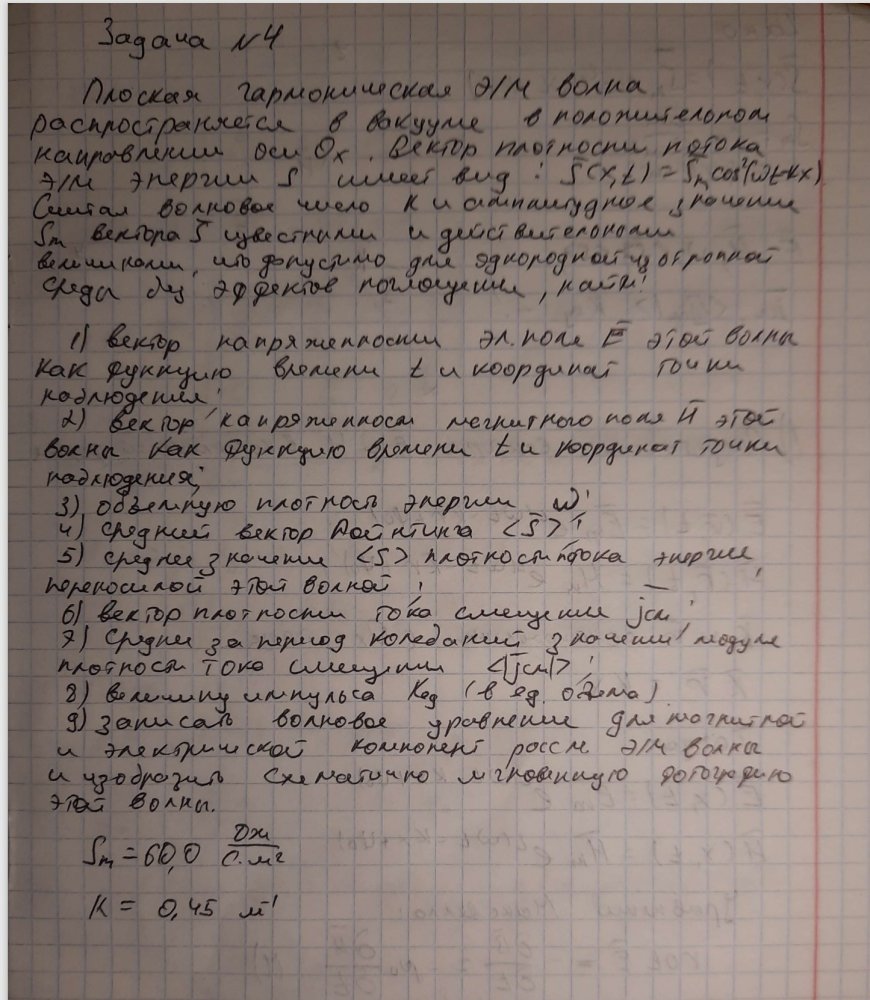 Задача №4
Плоская гармоническая э/м волна
распространяется в вакууме в положительном
направлении оси Ox. Вектор плотности потока
э/м энергии S имеет вид: S̄(x,t) = S̄m cos²(ωt-kx)
Считая волновое число k и амплитудное значение
Sm вектора S̄ известными и действительными
величинами, что допустимо для однородной изотропной
среды без эффектов поглощения, найти:
1) вектор напряженности эл. поля Ē этой волны
как функцию времени t и координат точки
наблюдения;
2) вектор напряженности магнитного поля H̄ этой
волны как функцию времени t и координат точки
наблюдения;
3) объемную плотность энергии ω;
4) средний вектор Пойнтинга <S̄>;
5) среднее значение <S> плотности потока энергии,
переносимой этой волной;
6) вектор плотности тока смещения j̄см;
7) Среднее за период колебаний значение модуля
плотности тока смещения <|jсм|>;
8) величину импульса Kед (в ед. объема).
9) записать волновое уравнение для магнитной
и электрической компонент рассм. э/м волны
и изобразить схематично мгновенную фотографию
этой волны.
Sm = 60,0 Дж/с·м²
K = 0,45 м⁻¹